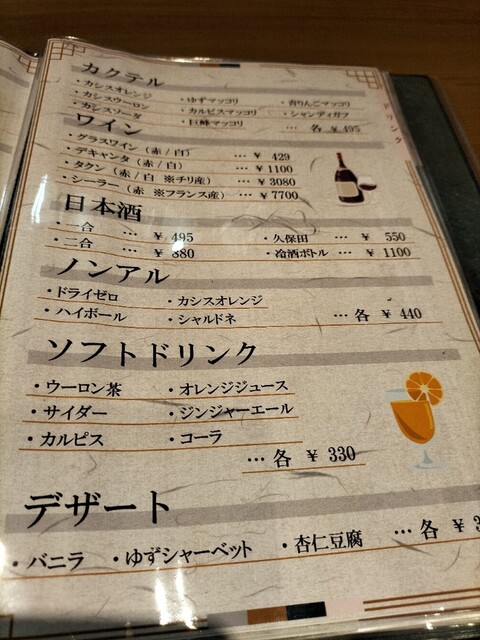 カクテル
・カシスオレンジ
・カシスウーロン ・ゆずマッコリ ・青りんごマッコリ
・カシスソーダ ・カルピスマッコリ ・シャンディガフ
・巨峰マッコリ … 各 ¥495
ワイン
・グラスワイン（赤/白） … ¥ 429
・デキャンタ（赤/白） … ¥1100
・タクン（赤/白 ※チリ産） … ¥3080
・シーラー（赤 ※フランス産） … ¥7700
日本酒
・一合 … ¥ 495 ・久保田 … ¥ 550
・二合 … ¥ 880 ・冷酒ボトル … ¥ 1100
ノンアル
・ドライゼロ ・カシスオレンジ
・ハイボール ・シャルドネ … 各 ¥ 440
ソフトドリンク
・ウーロン茶 ・オレンジジュース
・サイダー ・ジンジャーエール
・カルピス ・コーラ
… 各 ¥ 330
デザート
・バニラ ・ゆずシャーベット ・杏仁豆腐 … 各 ¥
ドリンク